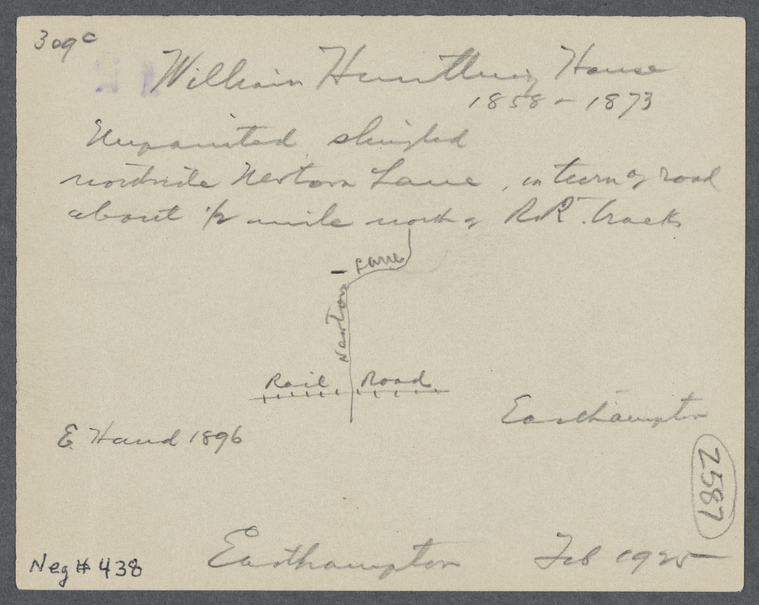 309c
William Huntting House
1858 - 1873
Unpainted, shingled
northside Newton Lane, in turn of road
about 1/2 mile north of R.R. tracks
Newton Lane
Rail Road
Easthampton
E. Hand 1896
2587
Easthampton Feb 1925
Neg # 438